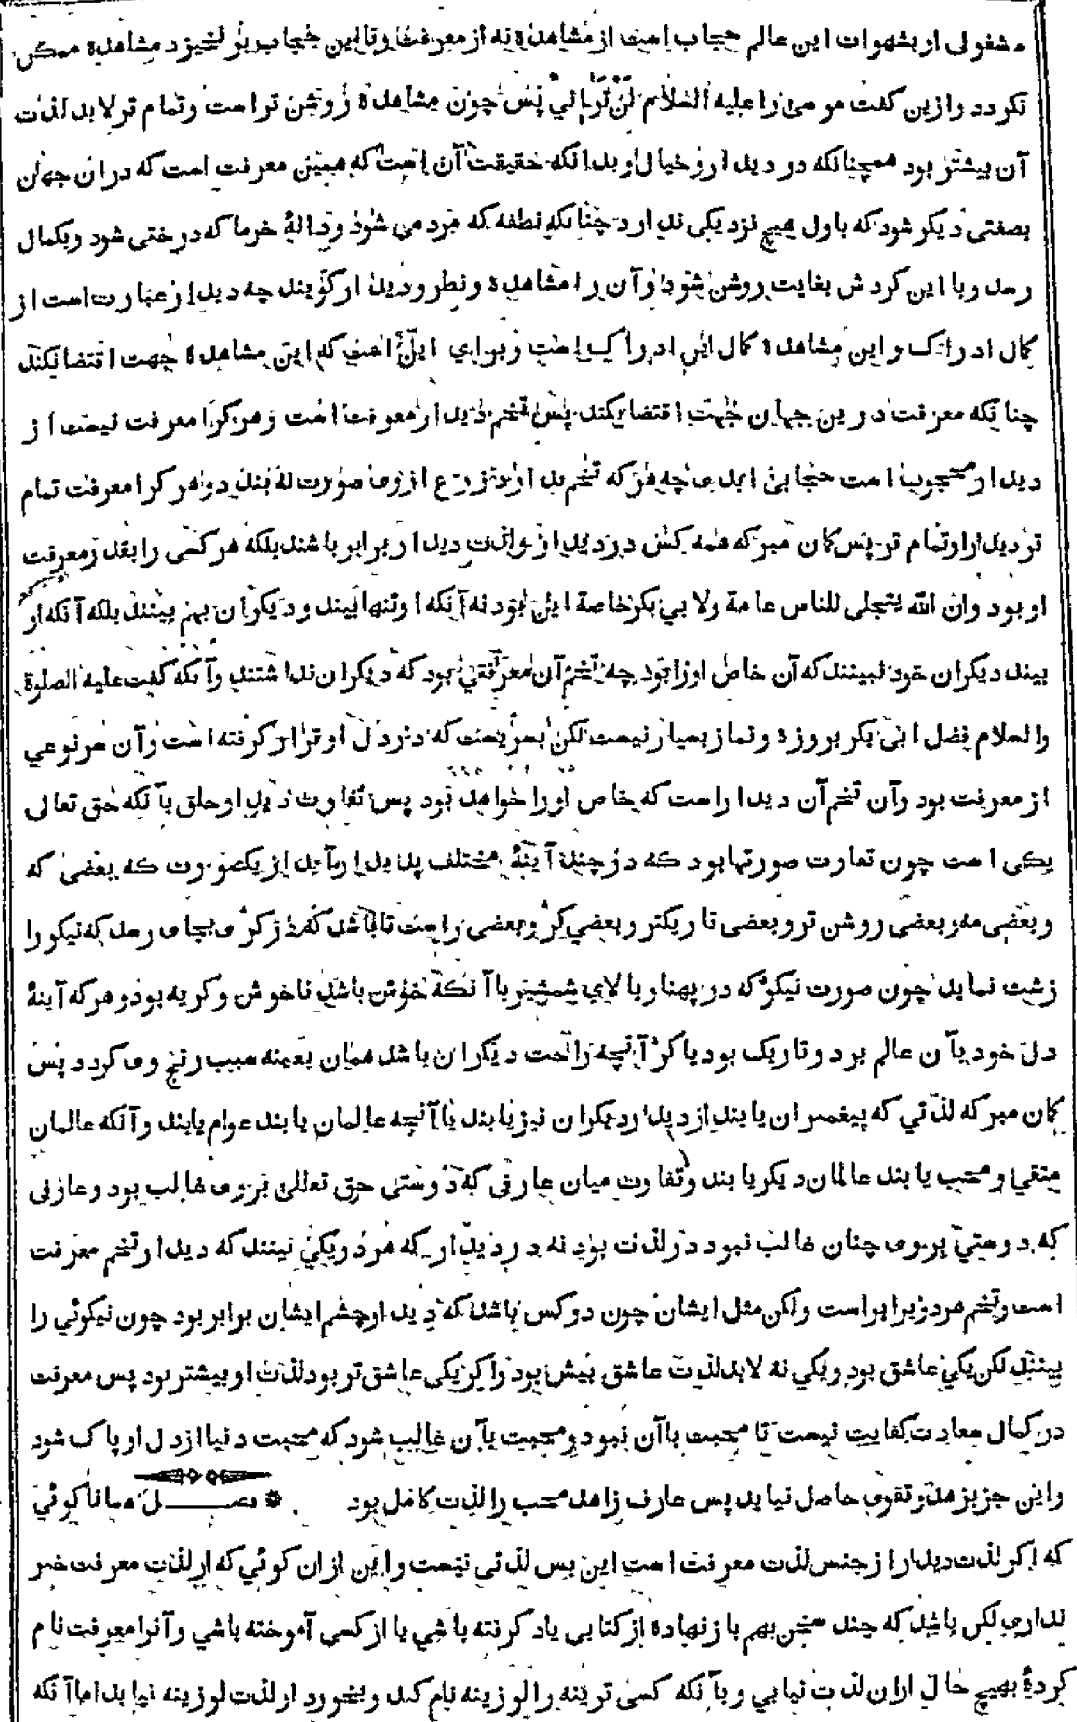 مشغولی از بشهوات این عالم حجاب است از مشاهده نه از معرفت و تا این حجاب بر نخیزد مشاهده ممکن
نکردد و ازین کفت موسی را علیه السلام لن ترانی پس چون مشاهده روشن تر است و تمام تر لابد لذت
آن بیشتر بود همچنانکه در دیدار و خیال و بدانکه حقیقت آن است که همین معرفت است که در ان جهان
بصفتی دیکر شود که باول هیچ نزدیکی ندارد چنانکه نطفه که مردمی شود و دانۀ خرما که درختی شود و بکمال
رسد و با این کردش بغایت روشن شود و آن را مشاهده و نظر و دیدار کویند چه دیدار عبارت است از
کمال ادراک و این مشاهده کمال این ادراک است و برای این است که این مشاهده جهت اقتضا نکند
چنانکه معرفت درین جهان جهت اقتضا نکند پس تخم دیدار معرفت است و هرکرا معرفت نیست از
دیدار محجوب است حجابی ابدی چه هر که تخم ندارد زرع از وی صورت نه بندد و هر کرا معرفت تمام
تر دیدار او تمام تر پس کمان مبر که همه کس در دیدار و لذت دیدار برابر باشند بلکه هر کسی را بقدر معرفت
او بود وان الله یتجلی للناس عامة ولابی بکر خاصة این بود نه آنکه او تنها بیند و دیکران بهم بینند بلکه آنکه او
بیند دیکران خود نبینند که آن خاص او را بود چه تخم آن معرفتی بود که دیکران نداشتند و آنکه کفت علیه الصلوة
والسلام فضل ابی بکر بروزه و نماز بسیار نیست لکن بسریست که در دل او قرار کرفته است و آن سر نوعی
از معرفت بود و آن تخم آن دیدار است که خاص او را خواهد بود پس تفاوت دیدار خلق با آنکه حق تعالی
یکی است چون تفاوت صورتها بود که در چند آینۀ مختلف پدیدار آید از یک صورت که بعضی که
و بعضی مه و بعضی روشن تر و بعضی تاریکتر و بعضی کژ و بعضی راست تا باشد که در کژی بجای رسد که نیکو را
زشت نماید چون صورت نیکو که در پهنا و بالای شمشیر با آنکه خوش باشد ناخوش و کریه بود و هر که آینۀ
دل خود بآن عالم برد و تاریک بود یا کژ آنچه راحت دیکران باشد همان بعینه سبب رنج وی کردد پس
کمان مبر که لذتی که پیغمبران یابند از دیدار دیکران نیز یابند یا آنچه عالمان یابند عوام یابند و آنکه عالمان
متقی و محب یابند عالمان دیکر یابند و تفاوت میان عارفی که دوستی حق تعالی بر وی غالب بود و عارفی
که دوستی بر وی چنان غالب نبود در لذت بود نه در دیدار که هر دو یکی بینند که دیدار تخم معرفت
است و تخم هر دو برابر است ولکن مثل ایشان چون دو کس باشد که دیدار چشم ایشان برابر بود چون نیکوئی را
بینند لکن یکی عاشق بود و یکی نه لابد لذت عاشق بیش بود و اکر یکی عاشق تر بود لذت او بیشتر بود پس معرفت
در کمال سعادت کفایت نیست تا محبت با آن نبود و محبت بآن غالب شود که محبت دنیا از دل او پاک شود
و این جز بزهد و تقوی حاصل نیاید پس عارف زاهد محب را لذت کامل بود * فصل همانا کوئی
که اکر لذت دیدار از جنس لذت معرفت است این بس لذتی نیست و این از ان کوئی که از لذت معرفت خبر
نداری لکن باشد که چند سخن بهم باز نهاده از کتابی یاد کرفته باشی یا از کسی آموخته باشی و آنرا معرفت نام
کردۀ بهیچ حال از ان لذت نیابی و بآنکه کسی ترینه را لوزینه نام کند و بخورد از لذت لوزینه نیابد اما آنکه